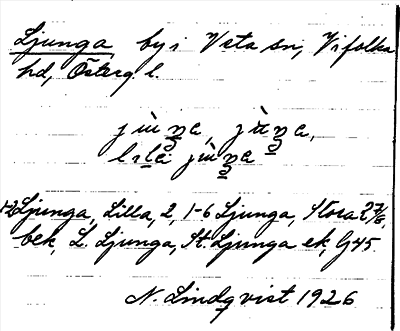 Ljunga by i Veta sn, Vifolka
hd, Österg. l.
jùŋa, jùŋa,
lɩla jùŋa
1-2 Ljunga, Lilla, 2, 1-6 Ljunga, Stora
bek, L. Ljunga, St. Ljunga ek, G45
N. Lindqvist 1926